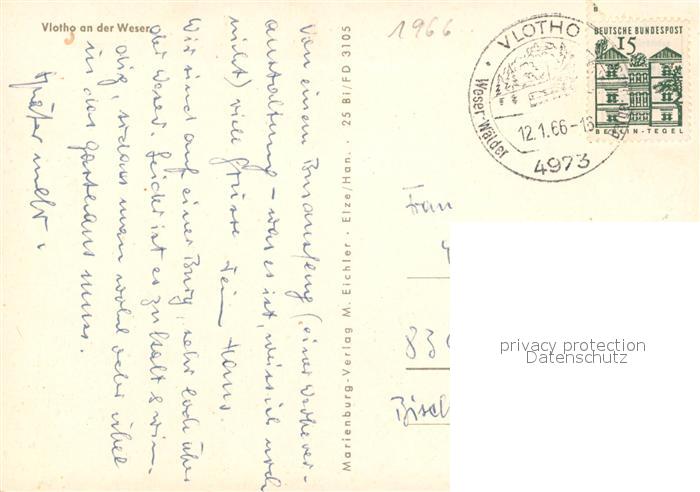 Vlotho an der Weser
1966
VLOTHO
Weser-Wälder
12.1.66-18
4973
DEUTSCHE BUNDESPOST
15
BERLIN-TEGEL
Von einem Busausflug (einer Werbever-
anstaltung – was es ist, weiss ich noch
nicht) viele Grüsse Dein Hans.
Wir sind auf einer Burg, sehr hoch über
der Weser. Leider ist es zu kalt & win-
dig, sodass man wohl oder übel
in das Gasthaus muss.
Später mehr.
Marienburg-Verlag M. Eichler · Elze/Han. · 25 Bi/FD 3105
Frau
Bisch
privacy protection
Datenschutz